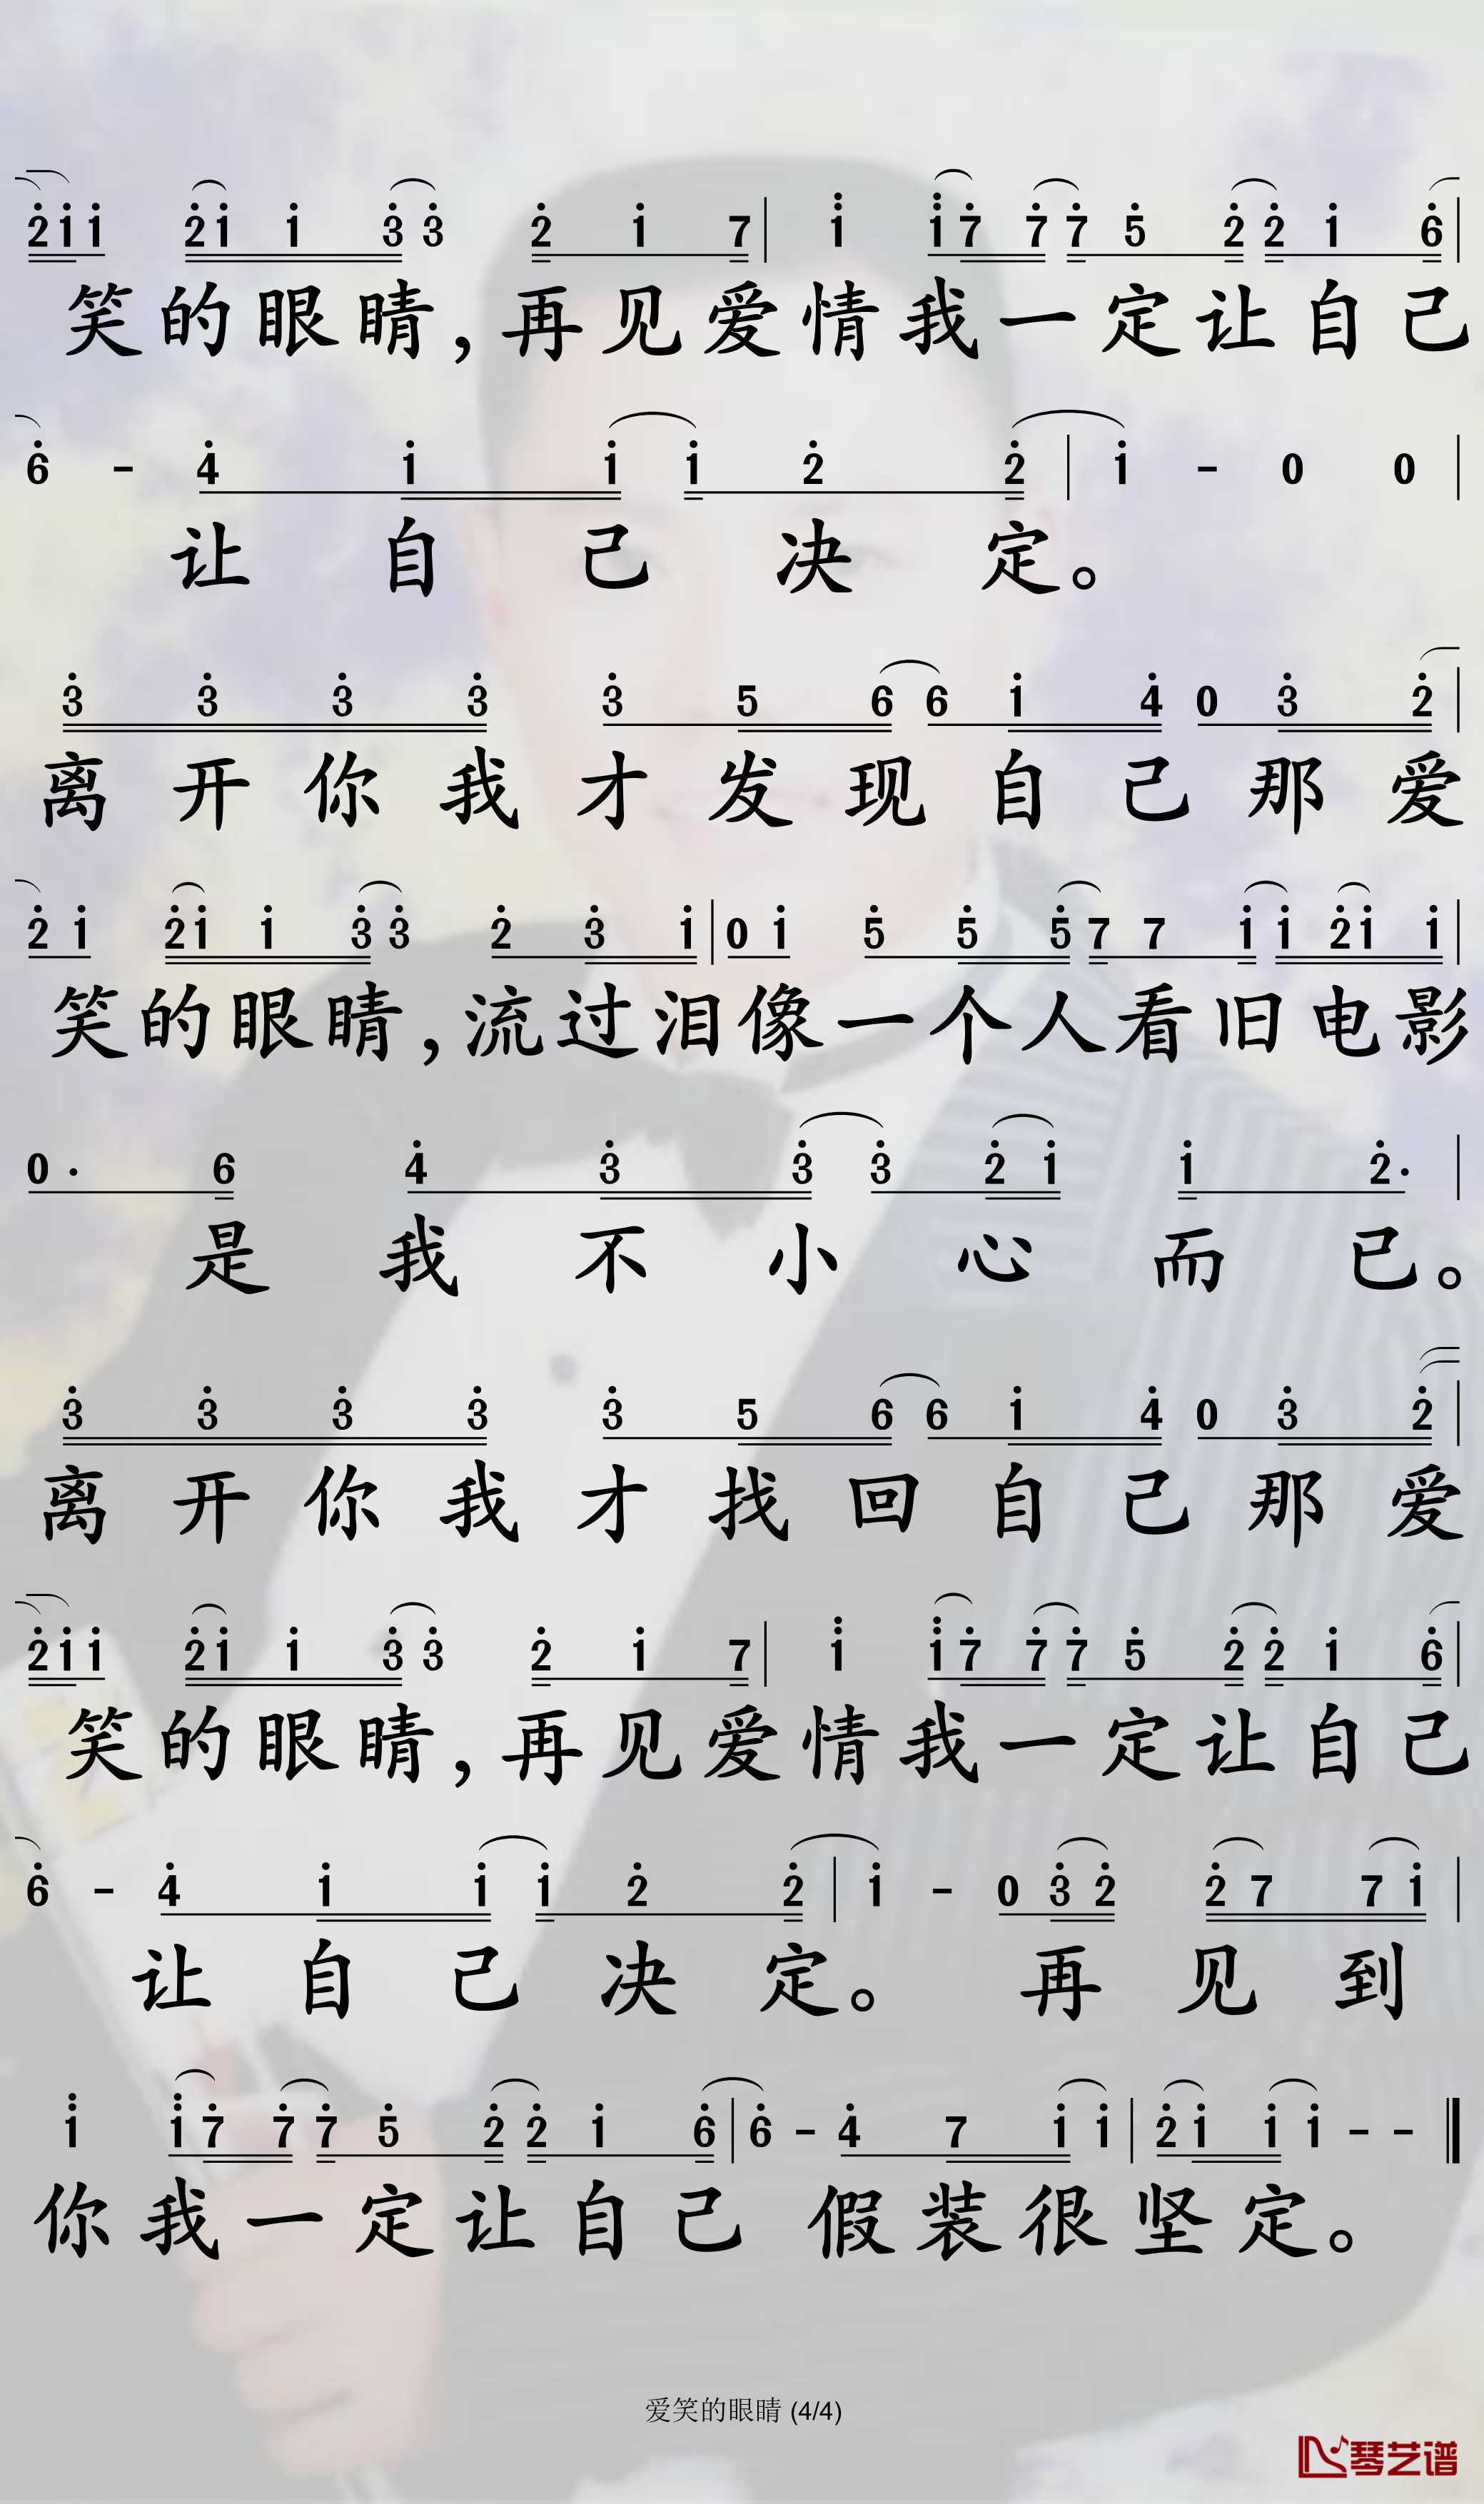 2 1 1 2 1 1 3 3 2 1 7 | 1 1 7 7 7 5 2 2 1 6 |
笑的眼睛,再见爱情我一定让自己
6 - 4 1 1 1 2 2 | 1 - 0 0 |
让自己决定。
3 3 3 3 3 5 6 6 1 4 0 3 2 |
离开你我才发现自己那爱
2 1 2 1 1 3 3 2 3 1 | 0 1 5 5 5 7 7 1 1 2 1 1 |
笑的眼睛,流过泪像一个人看旧电影
0 · 6 4 3 3 3 2 1 1 2 · |
是我不小心而已。
3 3 3 3 3 5 6 6 1 4 0 3 2 |
离开你我才找回自己那爱
2 1 1 2 1 1 3 3 2 1 7 | 1 1 7 7 7 5 2 2 1 6 |
笑的眼睛,再见爱情我一定让自己
6 - 4 1 1 1 2 2 | 1 - 0 3 2 2 7 7 1 |
让自己决定。再见到
1 1 7 7 7 5 2 2 1 6 | 6 - 4 7 1 1 | 2 1 1 1 - - ||
你我一定让自己 假装很坚定。
爱笑的眼睛 (4/4)
琴艺谱